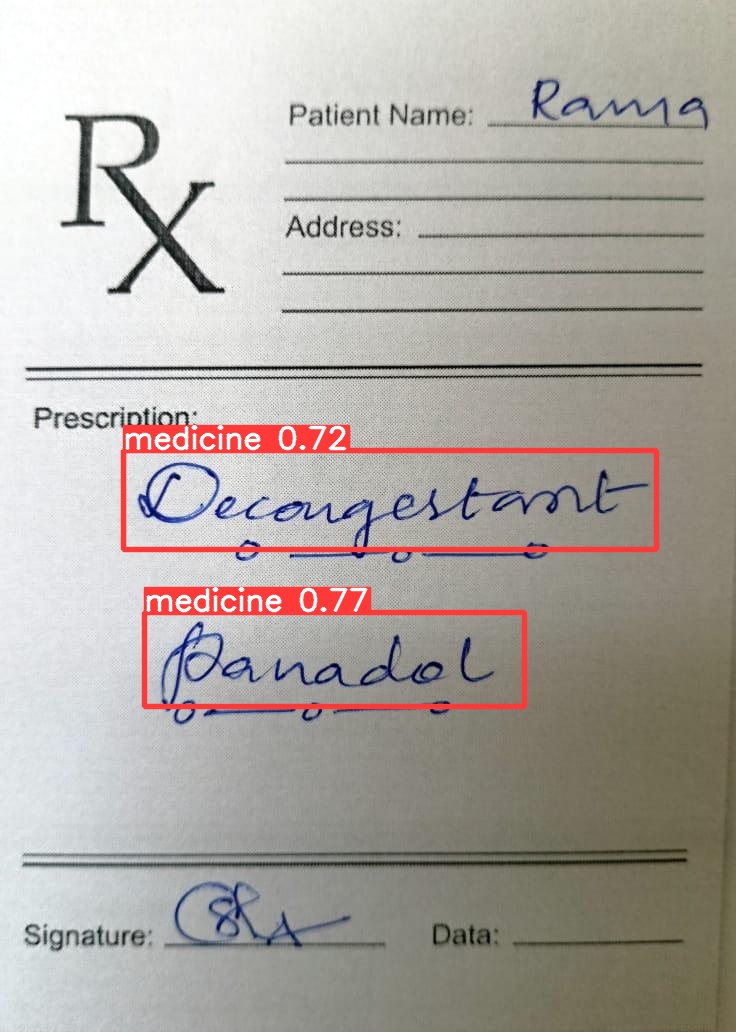 Rx
Patient Name: Rama
Address:
Prescription:
medicine 0.72
Decongestant
0 — 0 — 0
medicine 0.77
Panadol
0 — 0 — 0
Signature:
Data: